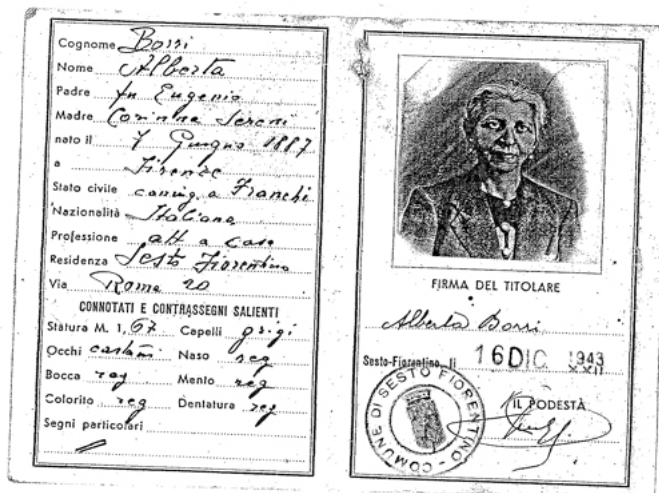 Cognome Borri
Nome Alberta
Padre fu Eugenio
Madre Corinna Sereni
nato il 7 Giugno 1887
a Firenze
Stato civile coniug. a Franchi
Nazionalità Italiana
Professione att. a casa
Residenza Sesto Fiorentino
Via Roma 20
CONNOTATI E CONTRASSEGNI SALIENTI
Statura M. 1,67 Capelli grigi
Occhi castani Naso reg
Bocca reg Mento reg
Colorito reg Dentatura reg
Segni particolari
FIRMA DEL TITOLARE
Alberta Borri
Sesto-Fiorentino, li 16 DIC 1943
XXII
COMUNE DI SESTO FIORENTINO
IL PODESTÀ